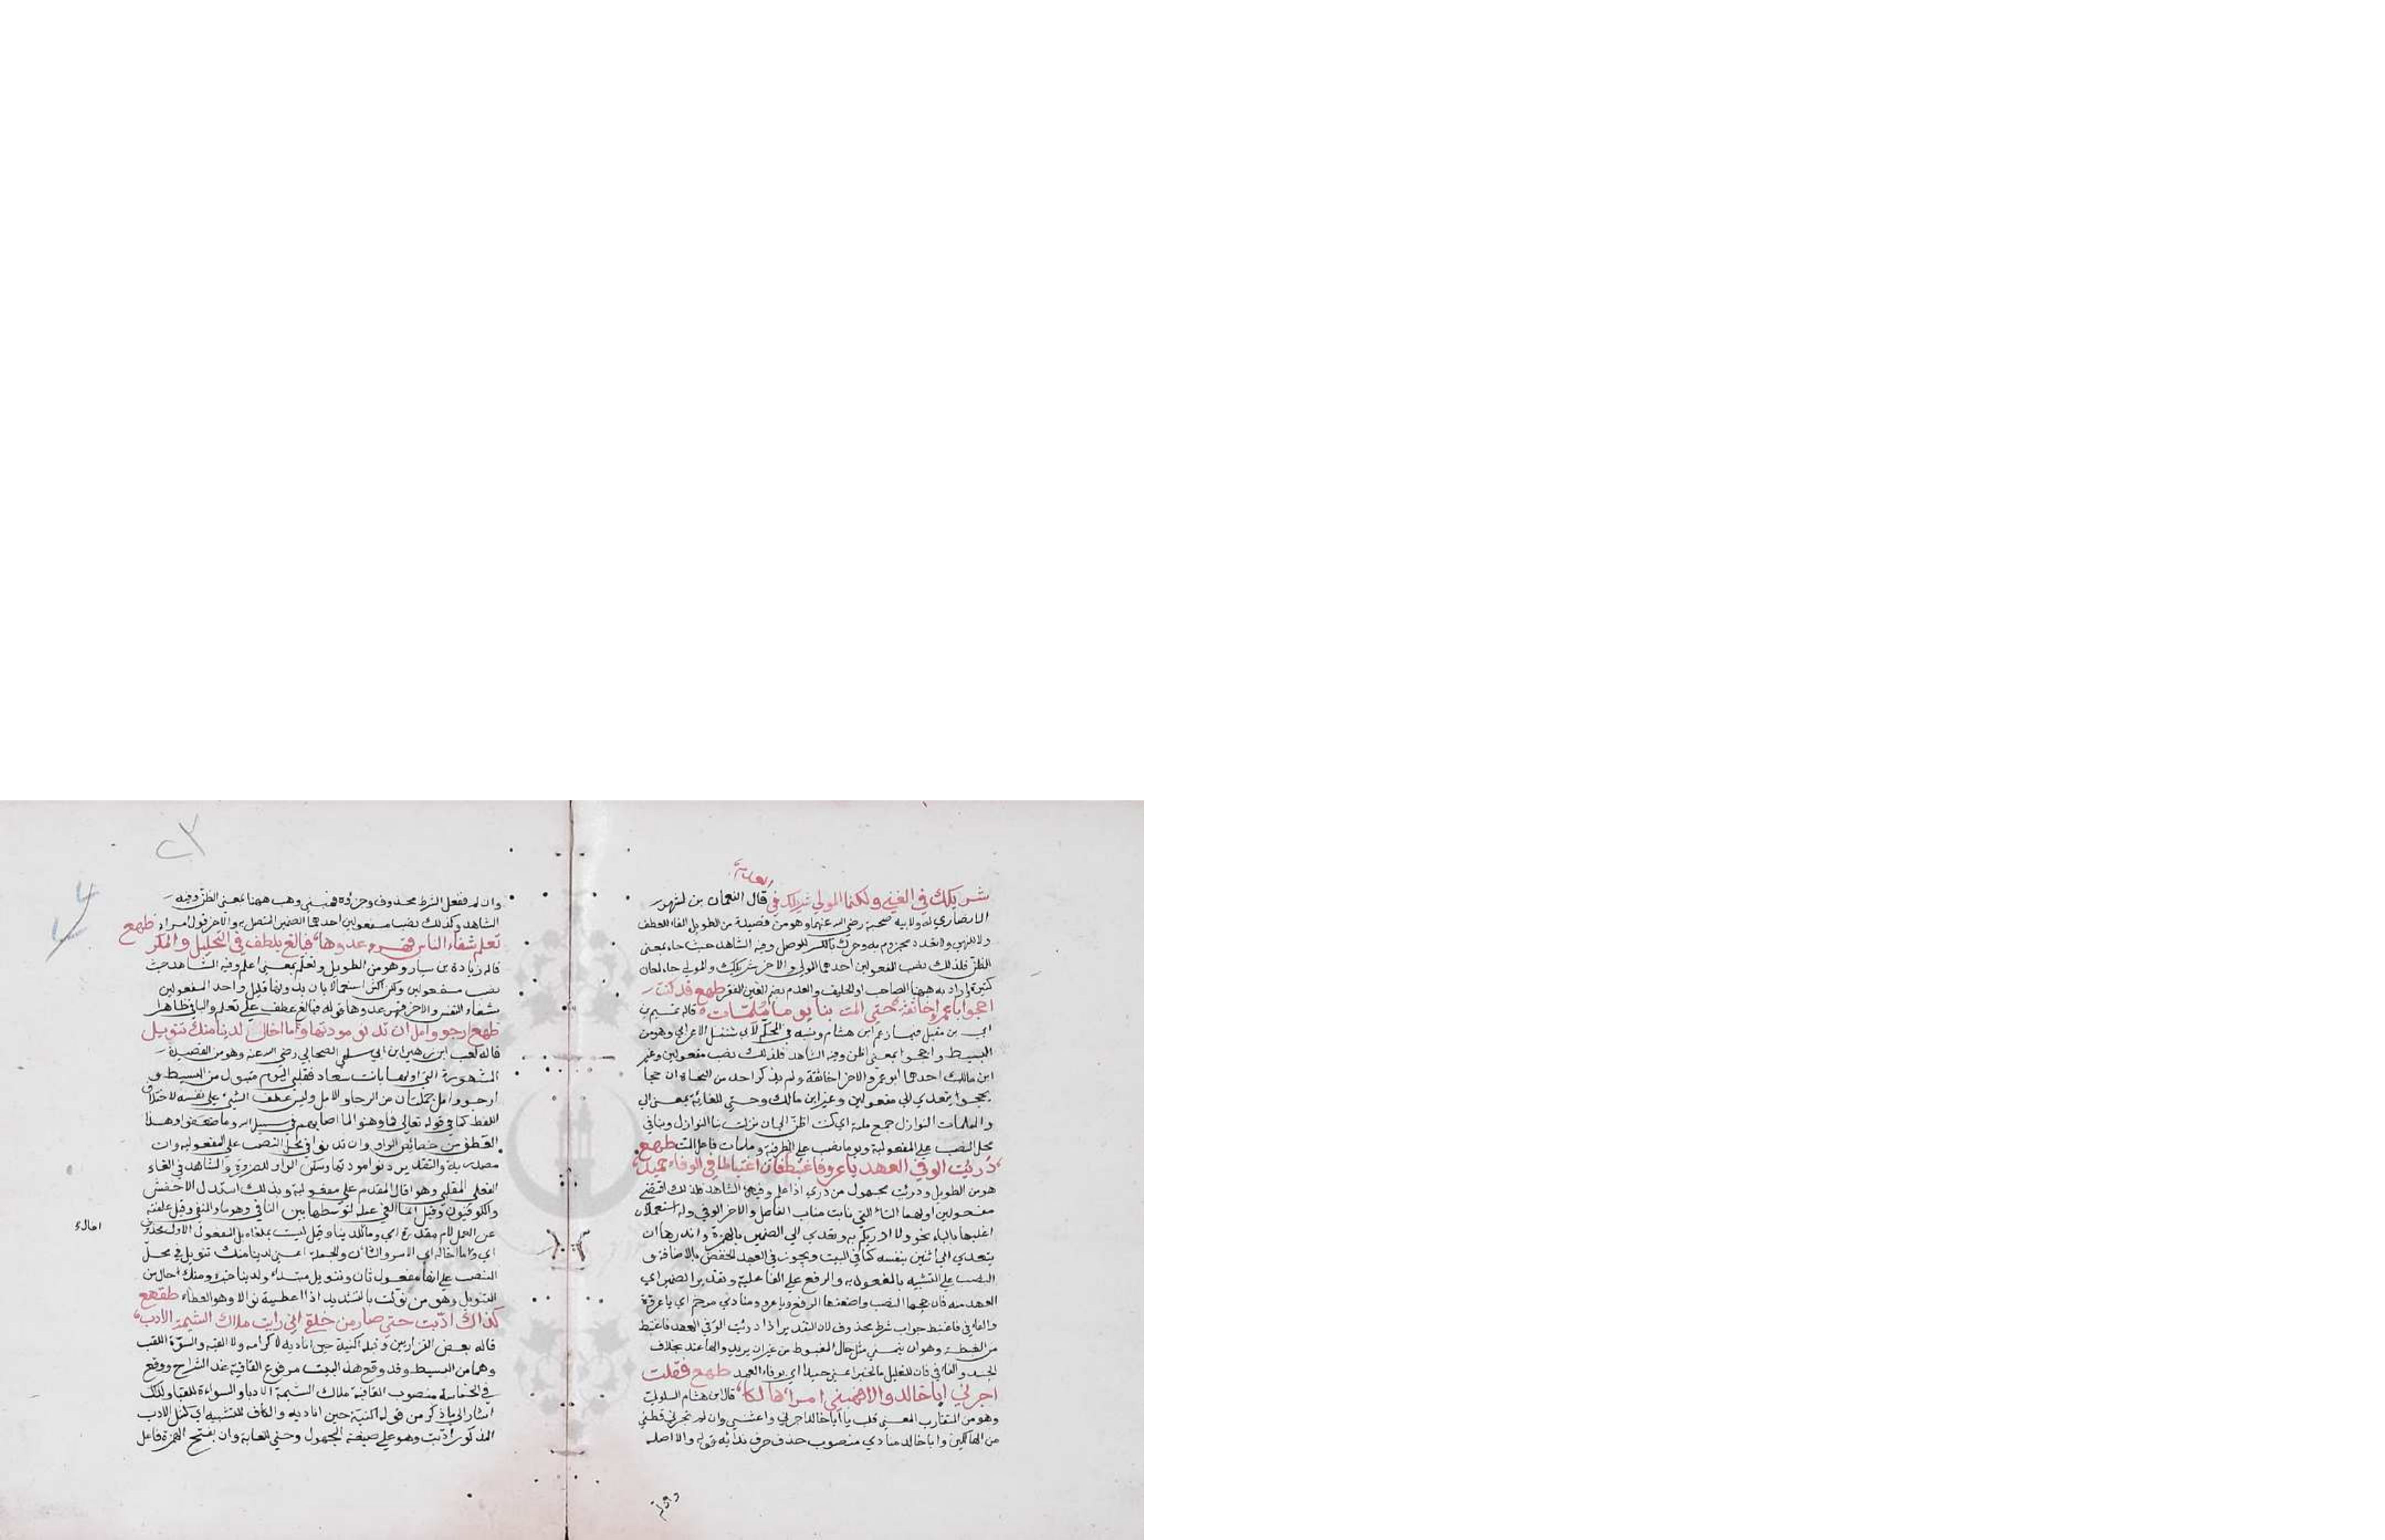 شريكك في الغني ولكنما المولي شريكك في قال النعمان بن بشير
الانصاري له ولابيه صحبة رضي الله عنهما وهو من قصيدة من الطويل الفاء للعطف
ولا للنهي وتعدد مجزوم به وحرك بالكسر للوصل وفيه الشاهد حيث جاء بمعني
الظن فلذلك نصب المفعولين احدهما المولي والاخر شريكك والمولي جاء لمعان
كثيرة اراد به ههنا الصاحب او الحليف والعدم بضم العين الفقر طهع قد كنت
احجوا ابا عمرو اخا ثقة حتي المت بنا يوما ملمات قاله تميم بن
ابي بن مقبل فيما زعم ابن هشام ونسبه في المحكم لابي شنبل الاعرابي وهو من
البسيط واحجوا بمعني اظن وفيه الشاهد فلذلك نصب مفعولين وغير
ابن مالك احدهما ابو عمرو والاخر اخا ثقة ولم يذكر احد من النحاة ان حجا
يحجوا يتعدي الي مفعولين وغير ابن مالك وحتي للغاية بمعني الي
والملمات النوازل جمع ملمة اي كنت اظن الي ان نزلت بنا النوازل وبنا في
محل النصب علي المفعولية ويوما نصب علي الظرفية وملمات فاعل المت طهع
دريت الوفي العهد يا عرو فاغتبط فان اغتباطا في الوفاء حميد
هو من الطويل ودريت مجهول من دري اذا علم وفيه الشاهد فلذلك اقتضي
مفعولين اولهما التاء التي نابت مناب الفاعل والاخر الوفي وله استعمالان
اغلبها بالباء نحو ولا ادريكم به وتعدي الي الضمير بالهمزة واندرها ان
يتعدي الي اثنين بنفسه كما في البيت ويجوز في العهد الخفض بالاضافة و
النصب علي التشبيه بالمفعول به والرفع علي الفاعلية وتقدير الضمير اي
العهد منه فان حجها النصب واضعفها الرفع ويا عرو منادي مرخم اي يا عروة
والفاء في فاغتبط جواب شرط محذوف لان التقدير اذا دريت الوفي العهد فاغتبط
من الغبطة وهو ان يتمني مثل حال المغبوط من غير ان يريد زوالها عنه بخلاف
الحسد والفاء في فان للتعليل والخبر اعني حميد اي بوفاء العهد طهع فقلت
اجرني ابا خالد والا فهبني امرا هالكا قاله ابن همام السلولي
وهو من المتقارب المعني قلت يا ابا خالد اجرني واغثني وان لم تجرني فظني
من الهالكين وابا خالد منادي منصوب حذف حرف ندائه قوله والا اصله
وان لم ففعل الشرط محذوف وجزاؤه فهبني وهب ههنا بمعني الظن وفيه
الشاهد وكذلك نصب مفعولين احدهما الضمير المتصل به والاخر قوله امرا طهع
تعلم شفاء النفس قهر عدوها فبالغ بلطف في التحيل والمكر
قاله زيادة بن سيار وهو من الطويل وتعلم بمعني اعلم وفيه الشاهد حيث
نصب مفعولين ولكن اكثر استعمالا بان بدونها قليل واحد المفعولين
شفاء النفس والاخر قهر عدوها قوله فبالغ عطف علي تعلم والباقي ظاهر
ظهع ارجو وامل ان تدنو مودتها وما اخال لدينا منك تنويل
قاله كعب ابن زهير ابن ابي سلمي الصحابي رضي الله عنه وهو من القصيدة
المشهورة التي اولها بانت سعاد فقلبي اليوم متبول من البسيط و
ارجو وامل جملتان من الرجاء والامل وليس عطف الشئ علي نفسه لاختلاف
اللفظ كما في قوله تعالي فما وهنوا لما اصابهم في سبيل الله وما ضعفوا وهذا
العطف من خصائص الواو وان تدنوا في محل النصب علي المفعولية وان
مصدرية والتقدير دنو مودتها وسكن الواو للضرورة والشاهد في الغاء
الفعل القلبي وهو اخال المقدم علي مفعوليه وبذلك استدل الاخفش
والكوفيون وقيل انما الغي عمله لتوسطها بين النافي وهو ما والمنفي وقيل علقته
عن العمل لام مقدرة اي وما للدينا وقيل ليست بملغاة بل المفعول الاول محذوف
اي وما اخاله اي الامر والشان والجملة اعني لدينا منك تنويل في محل
النصب علي انها مفعول ثان وتنويل مبتداء ولدينا خبره ومنك حال من
التنويل وهو من نولت بالتشديد اذا اعطيته نوالا وهو العطاء طقهع
كذاك ادبت حتي صار من خلقي اني رايت ملاك الشيمة الادب
قاله بعض الفزاريين وقبله اكنيه حين اناديه لاكرمه ولا القبه والسوءة اللقب
وهما من البسيط وقد وقع هذا البيت مرفوع القافية عند الشراح ووقع
في الحماسة منصوب القافية ملاك الشيمة الادبا والسواءة اللقبا وكذاك
اشار الي ما ذكر من قوله اكنيه حين اناديه والكاف للتشبيه اي كمثل الادب
المذكور ادبت وهو علي صيغة المجهول وحتي للغاية وان بفتح الهمزة فاعل